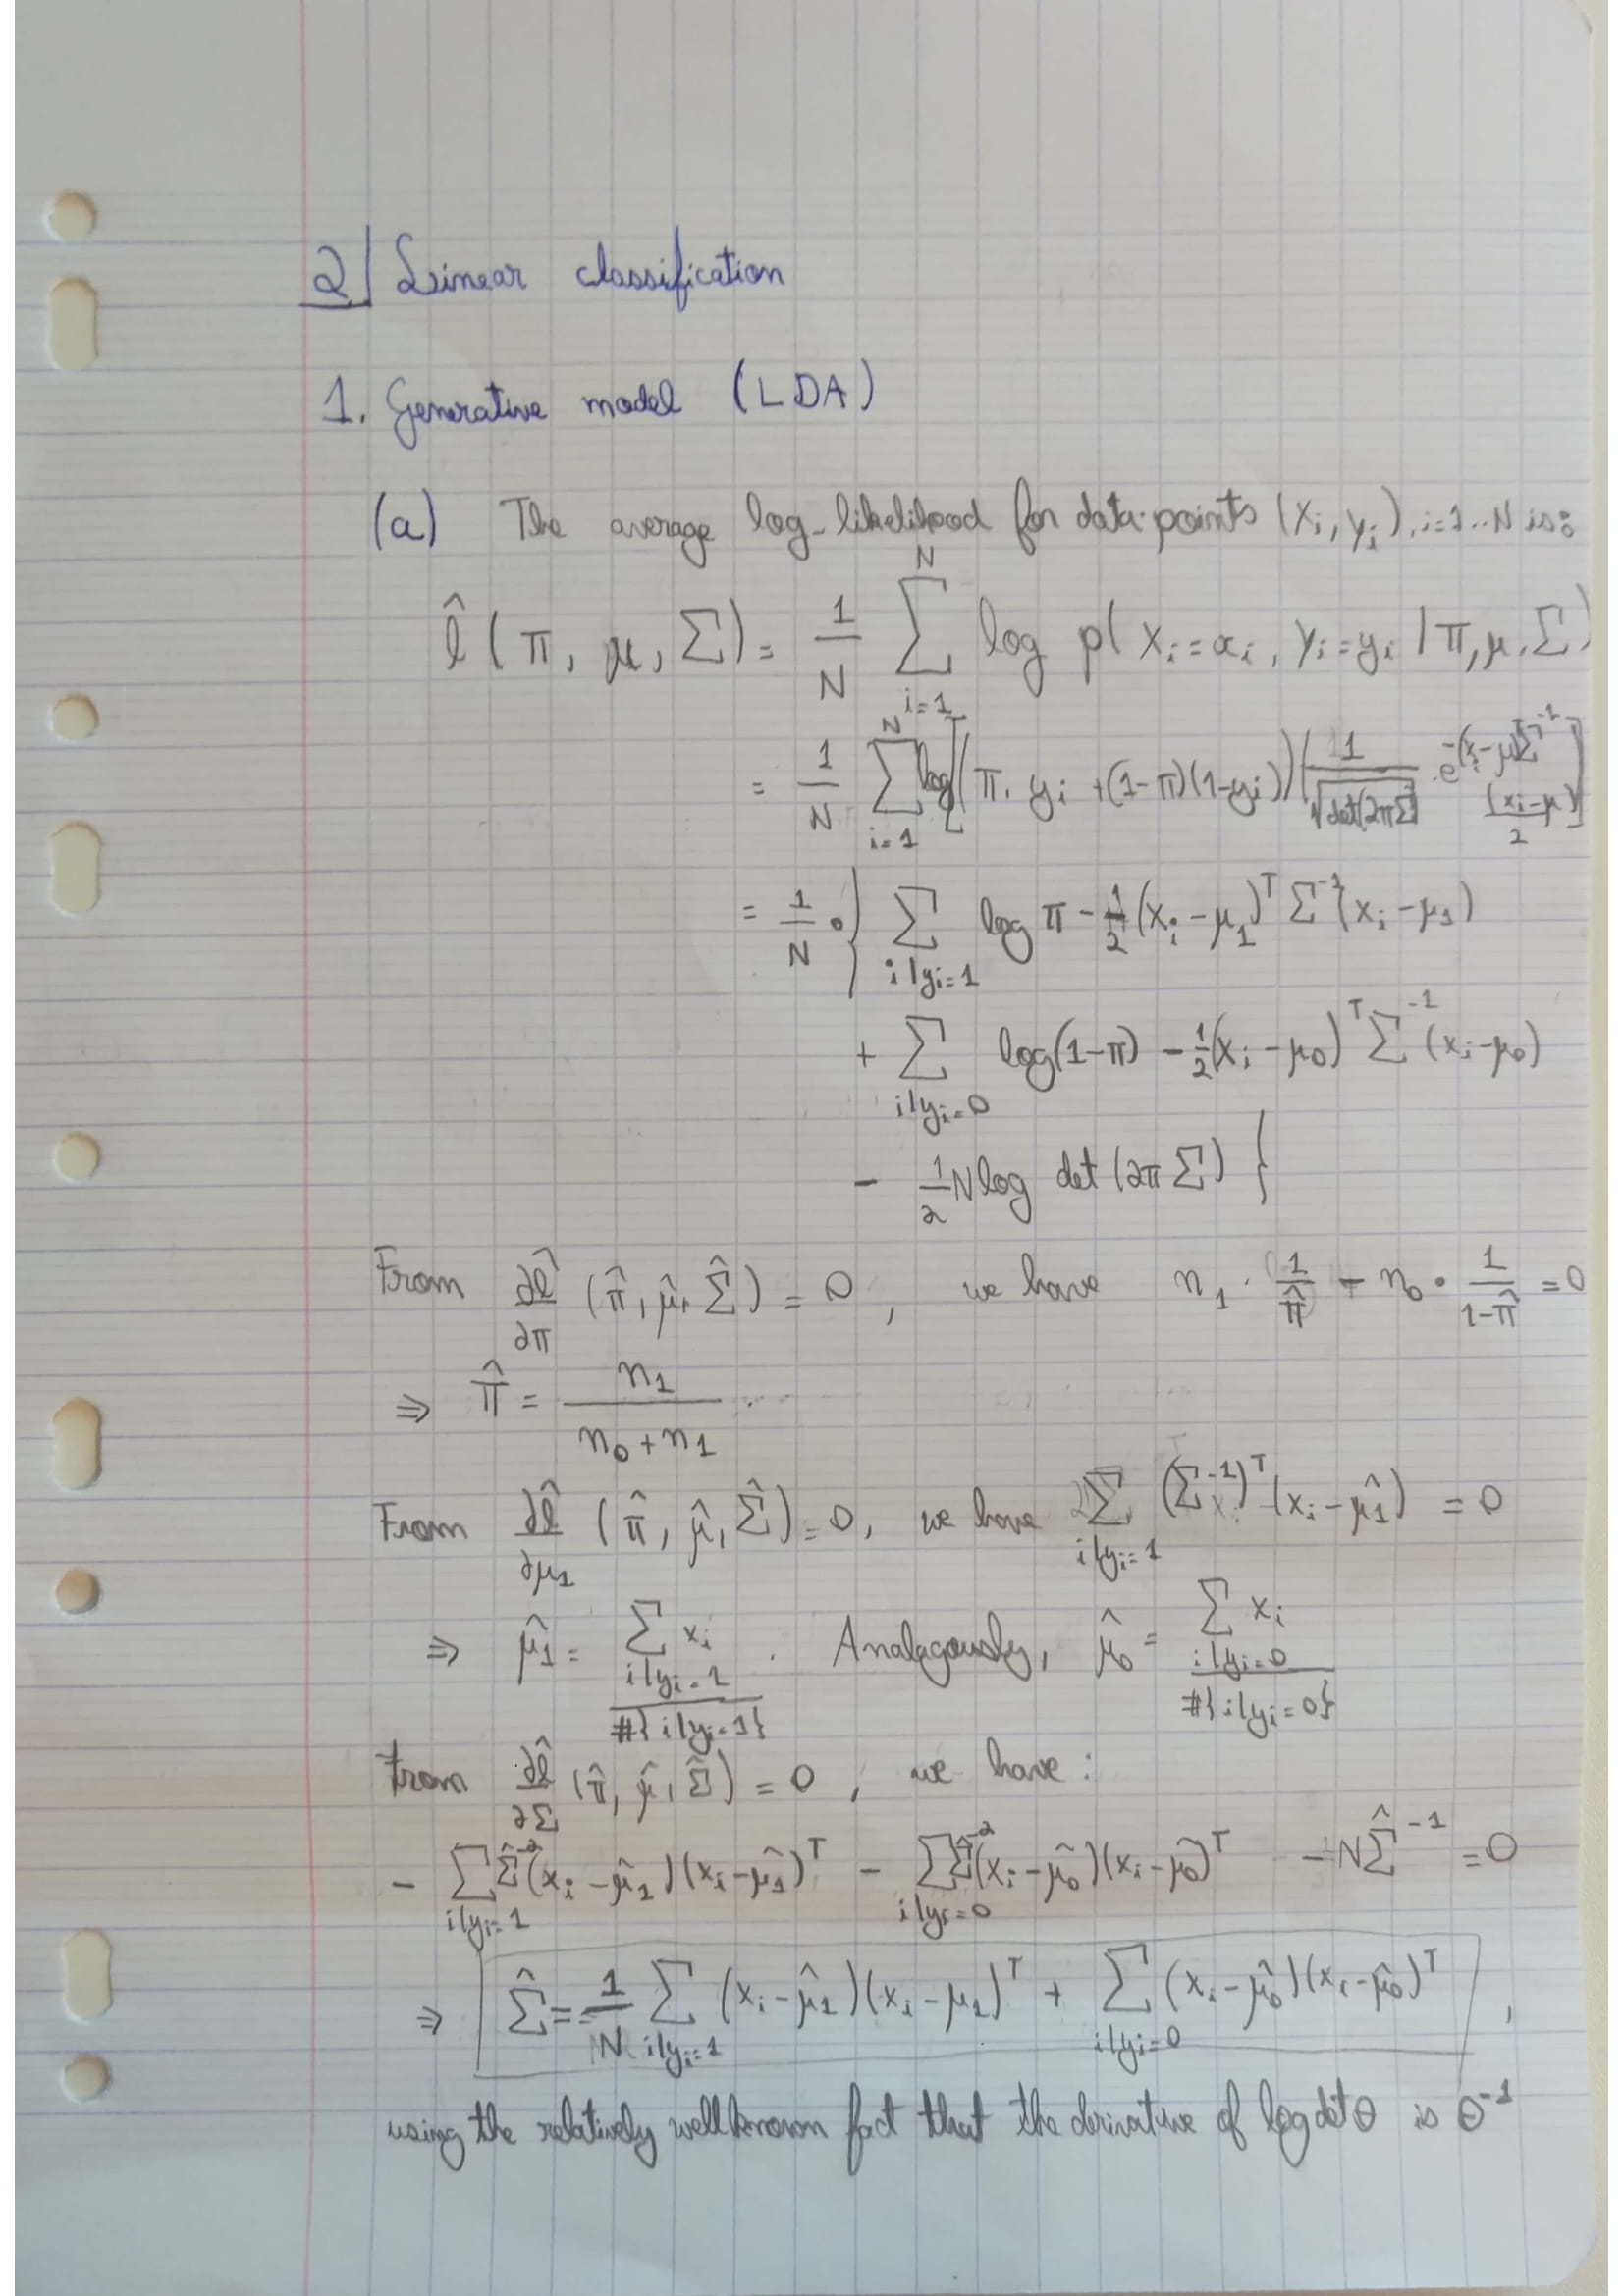 2/ Linear classification
1. Generative model (LDA)
(a) The average log-likelihood for data points (Xᵢ, yᵢ), i=1..N is:
l̂(π, μ, Σ) = 1/N ∑_{i=1}^{N} log p(Xᵢ=xᵢ, Yᵢ=yᵢ | π, μ, Σ)
= 1/N ∑_{i=1}^{N} log[(π. yᵢ +(1-π)(1-yᵢ))(1/√det(2πΣ) . e^{-(xᵢ-μ)ᵀΣ⁻¹(xᵢ-μ)/2}]
= 1/N • } ∑_{i|yᵢ=1} log π - 1/2 (xᵢ - μ₁)ᵀ Σ⁻¹ (xᵢ - μ₁)
+ ∑_{i|yᵢ=0} log(1-π) - 1/2 (xᵢ - μ₀)ᵀ Σ⁻¹ (xᵢ-μ₀)
- 1/2 N log det (2π Σ) {
From ∂l̂/∂π (π̂, μ̂, Σ̂) = 0, we have n₁ . 1/π̂ - n₀ • 1/(1-π̂) = 0
⇒ π̂ = n₁/(n₀ + n₁) .
From ∂l̂/∂μ₁ (π̂, μ̂, Σ̂) = 0, we have ∑_{i|yᵢ=1} (Σ⁻¹)ᵀ (xᵢ - μ̂₁) = 0
⇒ μ̂₁ = ∑_{i|yᵢ=1} xᵢ / #{i|yᵢ=1} . Analagously, μ̂₀ = ∑_{i|yᵢ=0} xᵢ / #{i|yᵢ=0}
From ∂l̂/∂Σ (π̂, μ̂, Σ̂) = 0, we have:
- ∑_{i|yᵢ=1} Σ̂⁻² (xᵢ - μ̂₁)(xᵢ - μ̂₁)ᵀ - ∑_{i|yᵢ=0} Σ̂⁻² (xᵢ - μ̂₀)(xᵢ - μ̂₀)ᵀ - N Σ̂⁻¹ = 0
⇒ Σ̂ = 1/N ∑_{i|yᵢ=1} (xᵢ - μ̂₁)(xᵢ - μ₁)ᵀ + ∑_{i|yᵢ=0} (xᵢ - μ̂₀)(xᵢ - μ̂₀)ᵀ ,
using the relatively well known fact that the derivative of log det θ is θ⁻¹